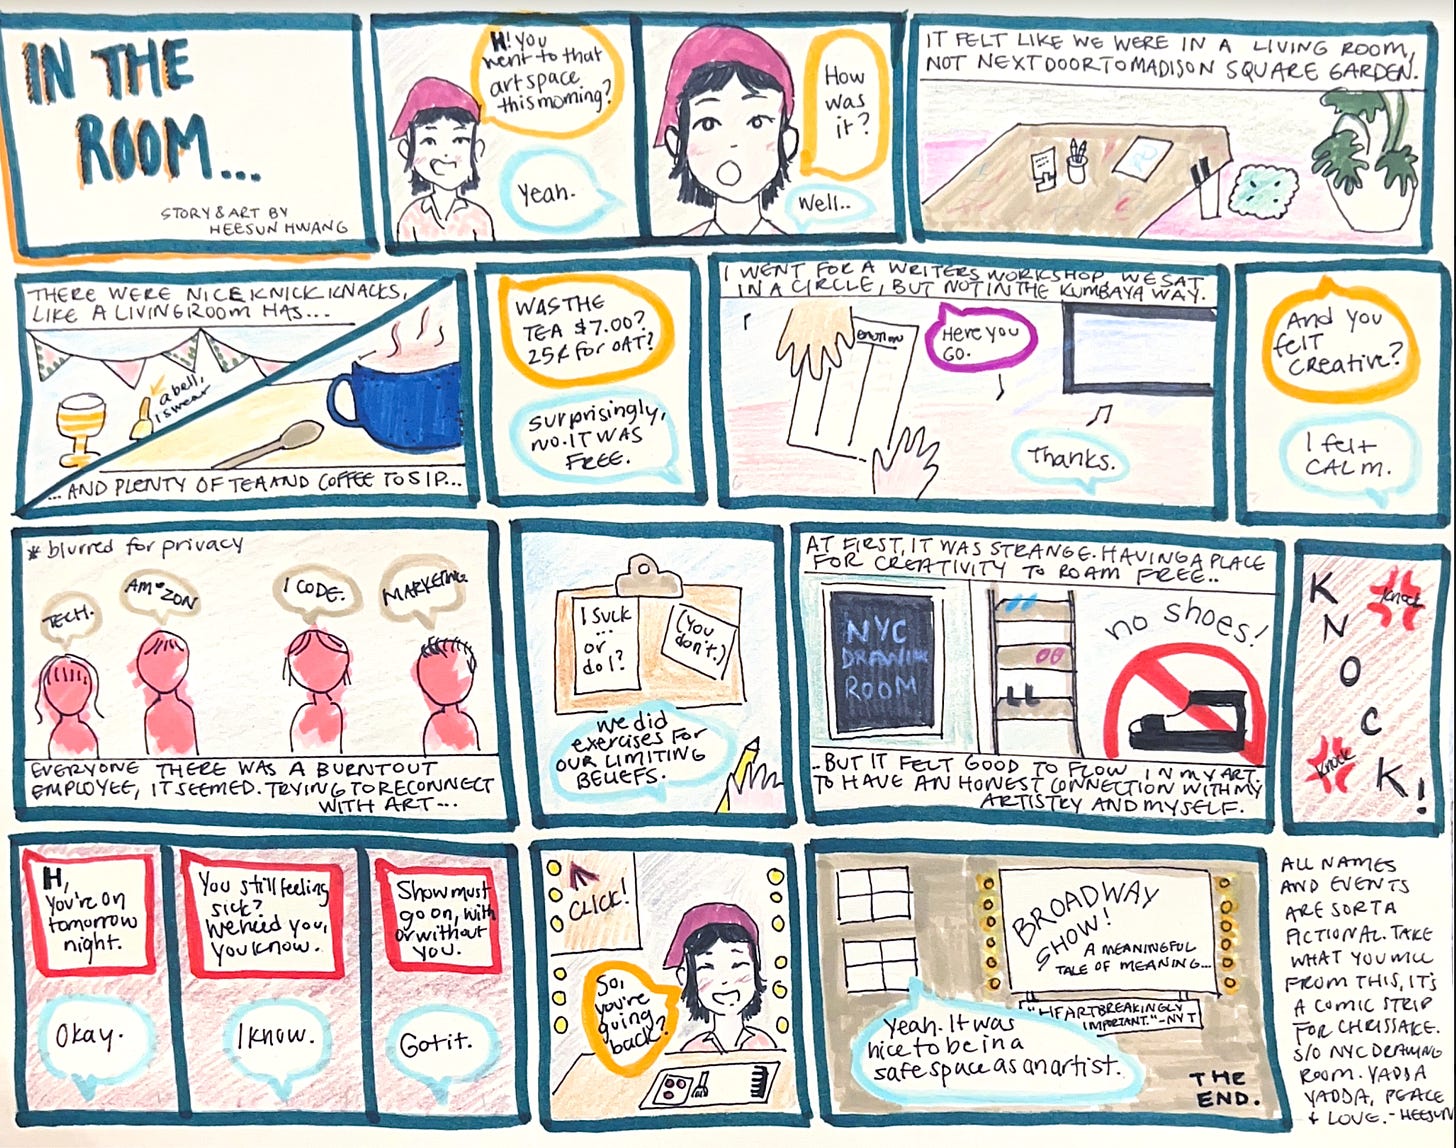 IN THE
ROOM...
STORY & ART BY
HEESUN HWANG
Hi! You
went to that
art space
this morning?
Yeah.
How
was
it?
Well..
IT FELT LIKE WE WERE IN A LIVING ROOM,
NOT NEXT DOOR TO MADISON SQUARE GARDEN.
THERE WERE NICE KNICK KNACKS,
LIKE A LIVING ROOM HAS...
a bell,
I swear
...AND PLENTY OF TEA AND COFFEE TO SIP...
WAS THE
TEA $7.00?
25¢ for OAT?
Surprisingly,
no. IT WAS
FREE.
I WENT FOR A WRITERS WORKSHOP. WE SAT
IN A CIRCLE, BUT NOT IN THE KUMBAYA WAY.
Here you
GO.
Thanks.
And you
felt
creative?
I felt
CALM.
* blurred for privacy
TECH.
AM*ZON
I CODE.
MARKETING.
EVERYONE THERE WAS A BURNTOUT
EMPLOYEE, IT SEEMED. TRYING TO RECONNECT
WITH ART...
I SUCK
...
or
do I?
(You
don't.)
we did
exercises for
OUR LIMITING
BELIEFS.
AT FIRST, IT WAS STRANGE. HAVING A PLACE
FOR CREATIVITY TO ROAM FREE..
NYC
DRAWING
ROOM
no shoes!
..BUT IT FELT GOOD TO FLOW IN MY ART.
TO HAVE AN HONEST CONNECTION WITH MY
ARTISTRY AND MYSELF.
KNOCK!
Knock
Knock
Hi,
You're on
tomorrow
night.
Okay.
You still feeling
sick?
We need you,
you know.
I know.
Show must
go on, with
or without
you.
Got it.
CLICK!
So,
you're
going
back?
BROADWAY
SHOW!
A MEANINGFUL
TALE OF MEANING...
"HEARTBREAKINGLY
IMPORTANT."-NYT
Yeah. It was
nice to be in a
safe space as an artist.
THE
END.
ALL NAMES
AND EVENTS
ARE SORTA
FICTIONAL. TAKE
WHAT YOU WILL
FROM THIS, IT'S
A COMIC STRIP
FOR CHRISSAKE.
S/O NYC DRAWING
ROOM. YADDA
YADDA, PEACE
& LOVE. - HEESUN